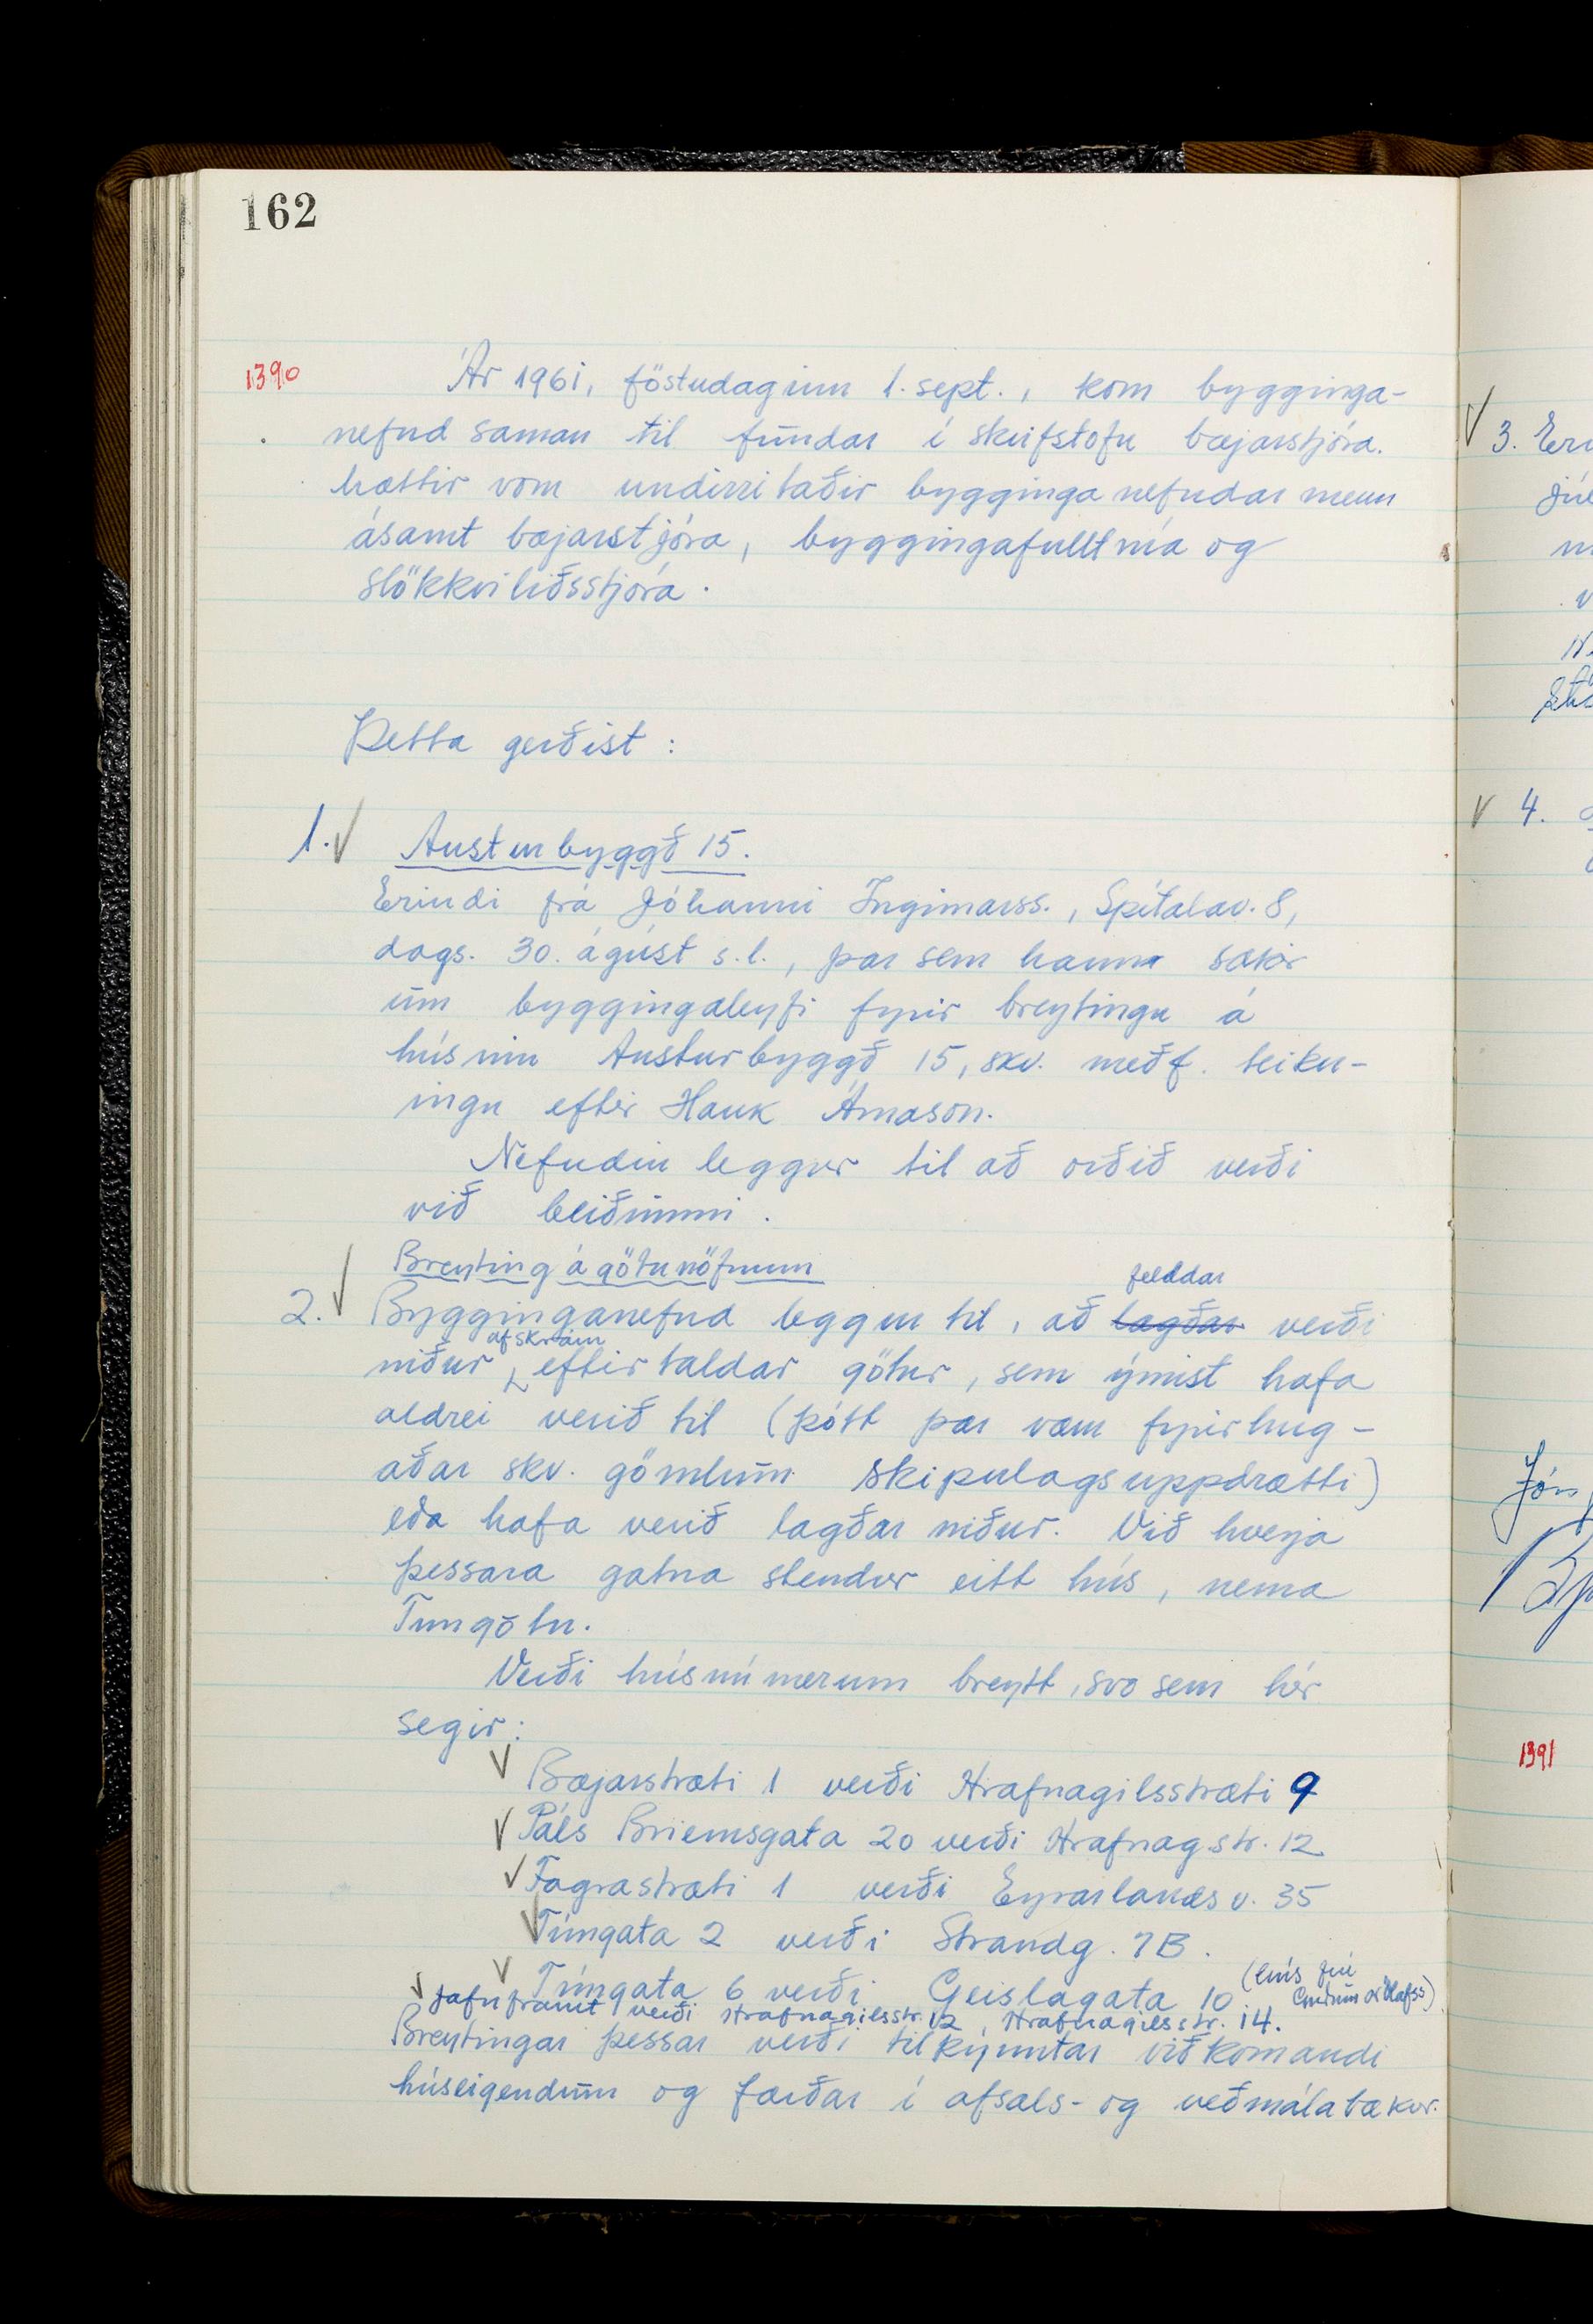 162
1390
Ár 1961, föstudaginn 1. sept., kom bygginga-
nefnd saman til fundar í skrifstofu bæjarstjóra.
Mættir voru undirritaðir bygginganefndarmenn
ásamt bæjarstjóra, byggingafulltrúa og
slökkviliðsstjóra.
Þetta gerðist:
1. Austurbyggð 15.
Erindi frá Jóhanni Ingimarss., Spítalav. 8,
dags. 30. ágúst s.l., þar sem hann sækir
um byggingaleyfi fyrir breytingu á
húsinu Austurbyggð 15, skv. meðf. teikn-
ingu eftir Hauk Árnason.
Nefndin leggur til að orðið verði
við beiðninni.
Breyting á götunöfnum
felldar
2. Bygginganefnd leggur til, að lagðar verði
af skrám
niður eftirtaldar götur, sem ýmist hafa
aldrei verið til (þótt þær væru fyrirhug-
aðar skv. gömlum skipulagsuppdrætti)
eða hafa verið lagðar niður. Við hverja
þessara gatna stendur eitt hús, nema
Túngötu.
Verði húsnúmerum breytt, svo sem hér
segir:
Bæjarstræti 1 verði Hrafnagilsstræti 9
Páls Briemsgata 20 verði Hrafnag.str. 12
Fagrastræti 1 verði Eyrarlandsv. 35
Túngata 2 verði Strandg. 7B.
Túngata 6 verði Geislagata 10. (hús
Ólafss)
Jafnframt verði Hrafnagilsstr. 12, Hrafnagilsstr. 14.
Breytingar þessar verði tilkynntar viðkomandi
húseigendum og færðar í afsals- og veðmálabækur.
3.
4.
Jón
1391